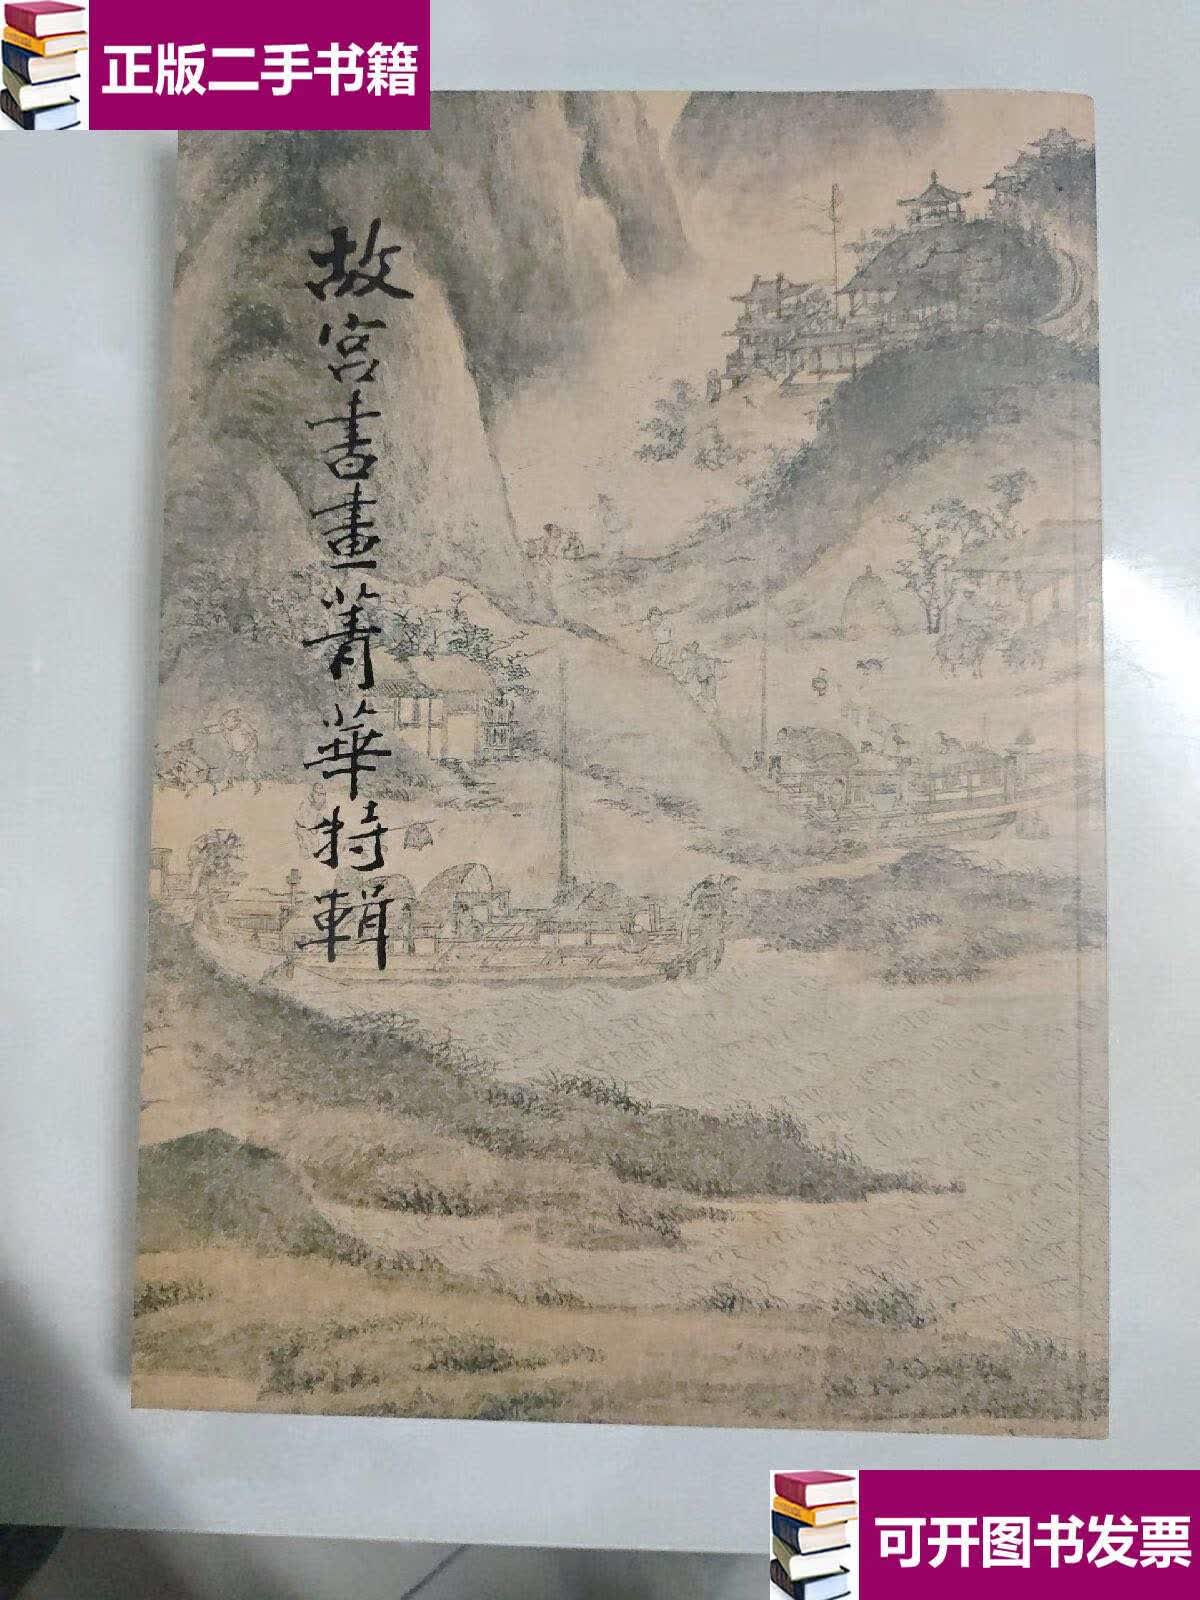 正版二手书籍
故宮書畫菁華特輯
可开图书发票